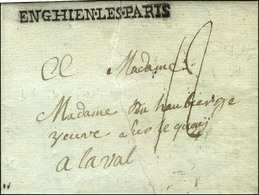 ENGHIEN-LES-PARIS
Madame
Madame du haubierge
veuve sur le quay
a laval